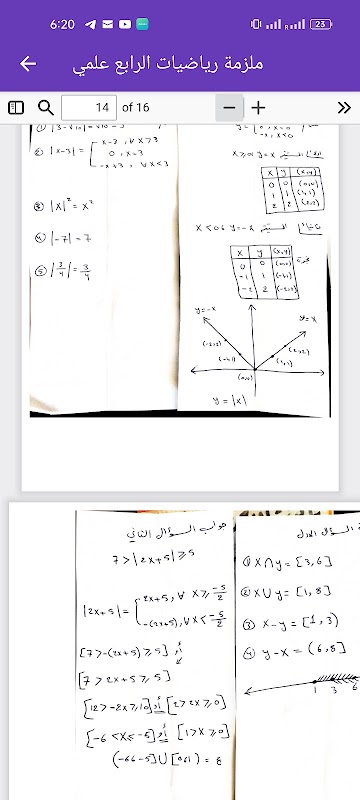 6:20
23
ملزمة رياضيات الرابع علمي
14 of 16
① |3-√10| = √10 - 3
② |x-3| = x-3 , ∀ x>3
0 , x=3
-x+3 , ∀ x<3
③ |x|² = x²
④ |-7| = 7
⑤ |3/4| = 3/4
0 , x=0
y = x
x y (x,y)
0 0 (0,0)
1 1 (1,1)
2 2 (2,2)
y = -x
x y (x,y)
0 0 (0,0)
-1 1 (-1,1)
-2 2 (-2,2)
y=-x
y=x
(-2,2)
(2,2)
(-1,1)
(1,1)
(0,0)
y = |x|
جواب السؤال الثاني
7 > |2x+5| ≥ 5
|2x+5| = 2x+5 , ∀ x ≥ -5/2
-(2x+5) , ∀ x < -5/2
[7 > -(2x+5) ≥ 5] أو
[7 > 2x+5 ≥ 5]
[12 > -2x ≥ 10] أو [2 > 2x ≥ 0]
[-6 < x ≤ -5] أو [1 > x ≥ 0]
(-6,-5] ∪ [0,1) =
السؤال الاول
① x∩y = [3,6]
② x∪y = [1,8]
③ x-y = [1,3)
④ y-x = (6,8]
1 3 6